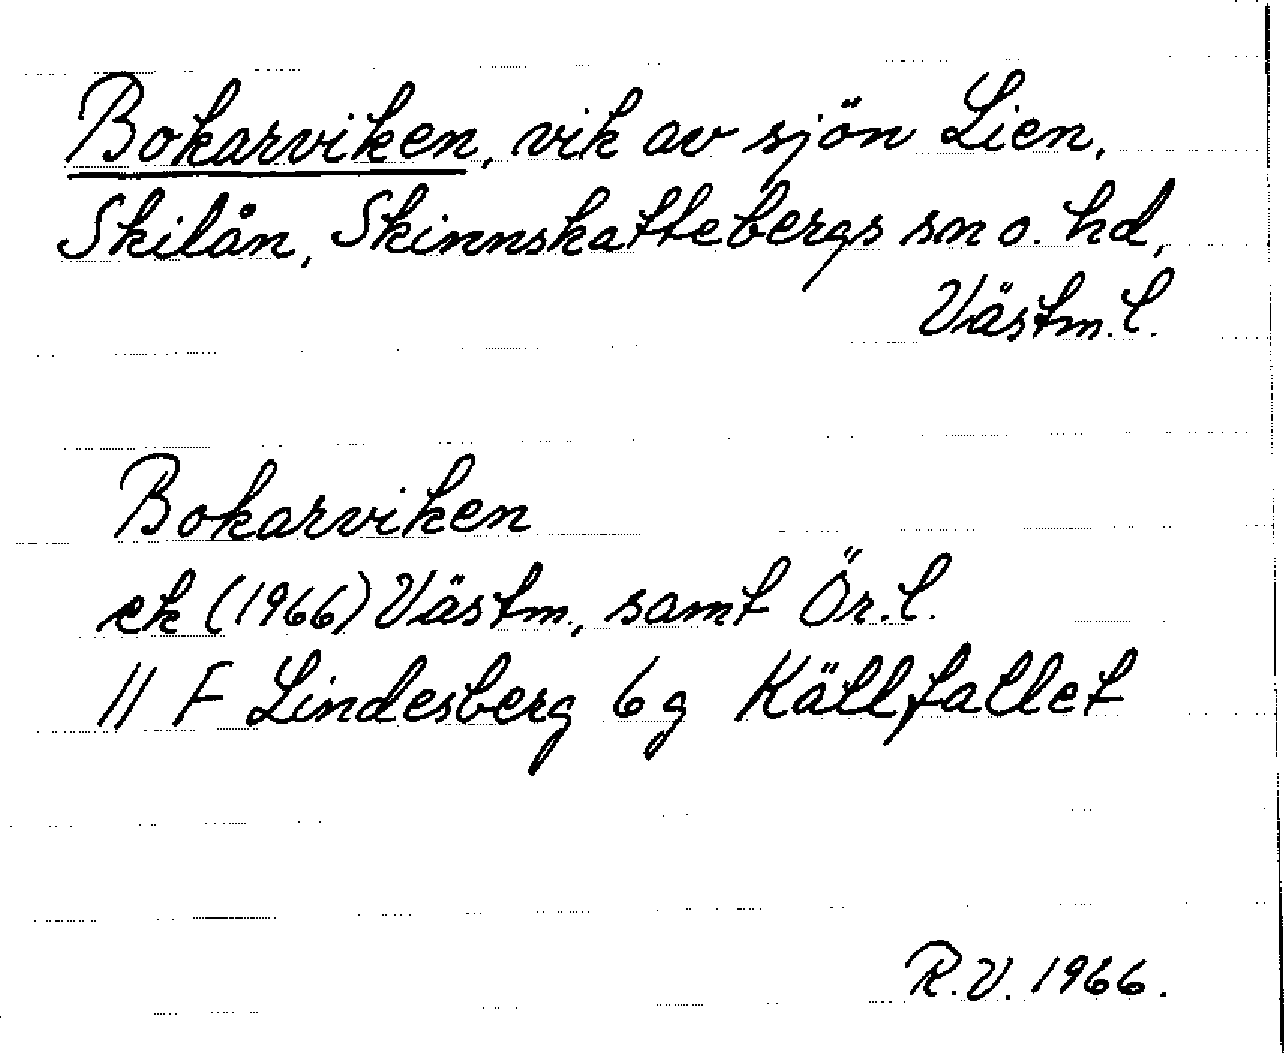 Bokarviken, vik av sjön Lien,
Skilån, Skinnskattebergs sn o. hd,
Västm. l.
Bokarviken
ek (1966) Västm., samt Ör. l.
11 F Lindesberg 6 g Källfallet
R.V. 1966.